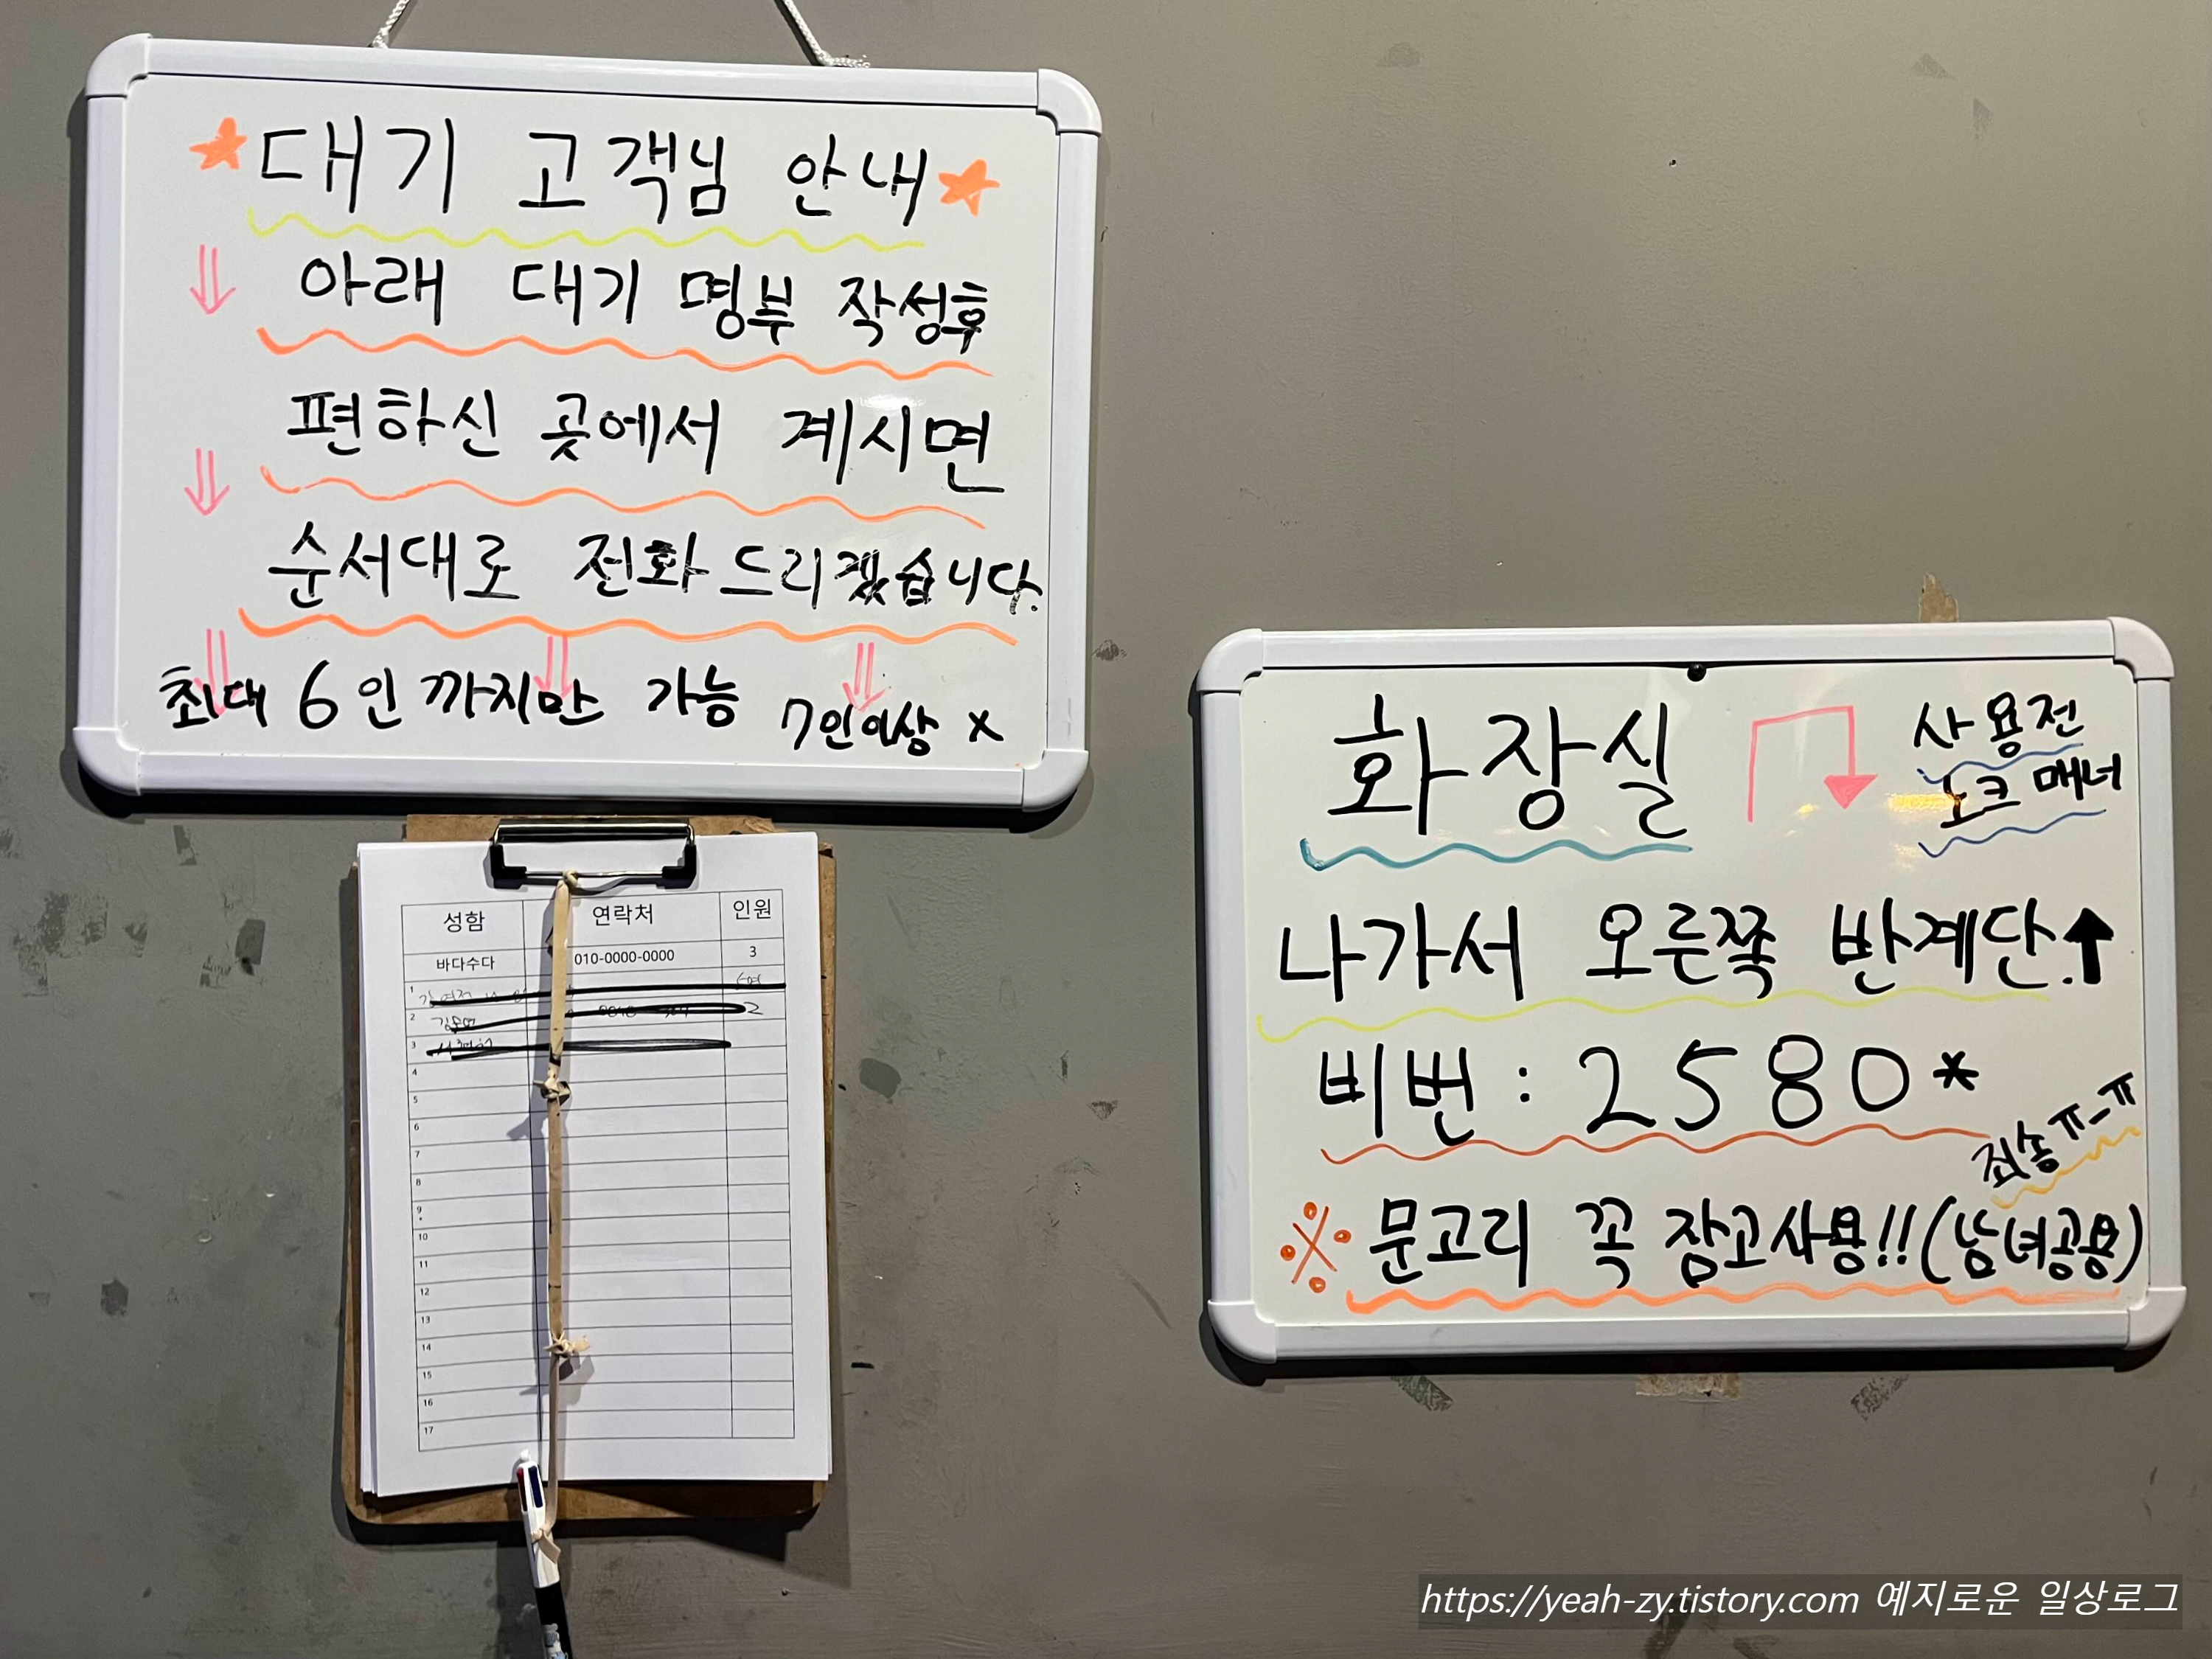 대기 고객님 안내
아래 대기 명부 작성후
편하신 곳에서 계시면
순서대로 전화 드리겠습니다.
최대 6인 까지만 가능 7인이상 x
성함 연락처 인원
바다수다 010-0000-0000 3
1
2 2
3
4
5
6
7
8
9
10
11
12
13
14
15
16
17
화장실
사용전
노크 매너
나가서 오른쪽 반계단.
비번 : 2580*
죄송 ㅠ_ㅠ
※ 문고리 꼭 잠고사용!! (남녀공용)
https://yeah-zy.tistory.com 예지로운 일상로그